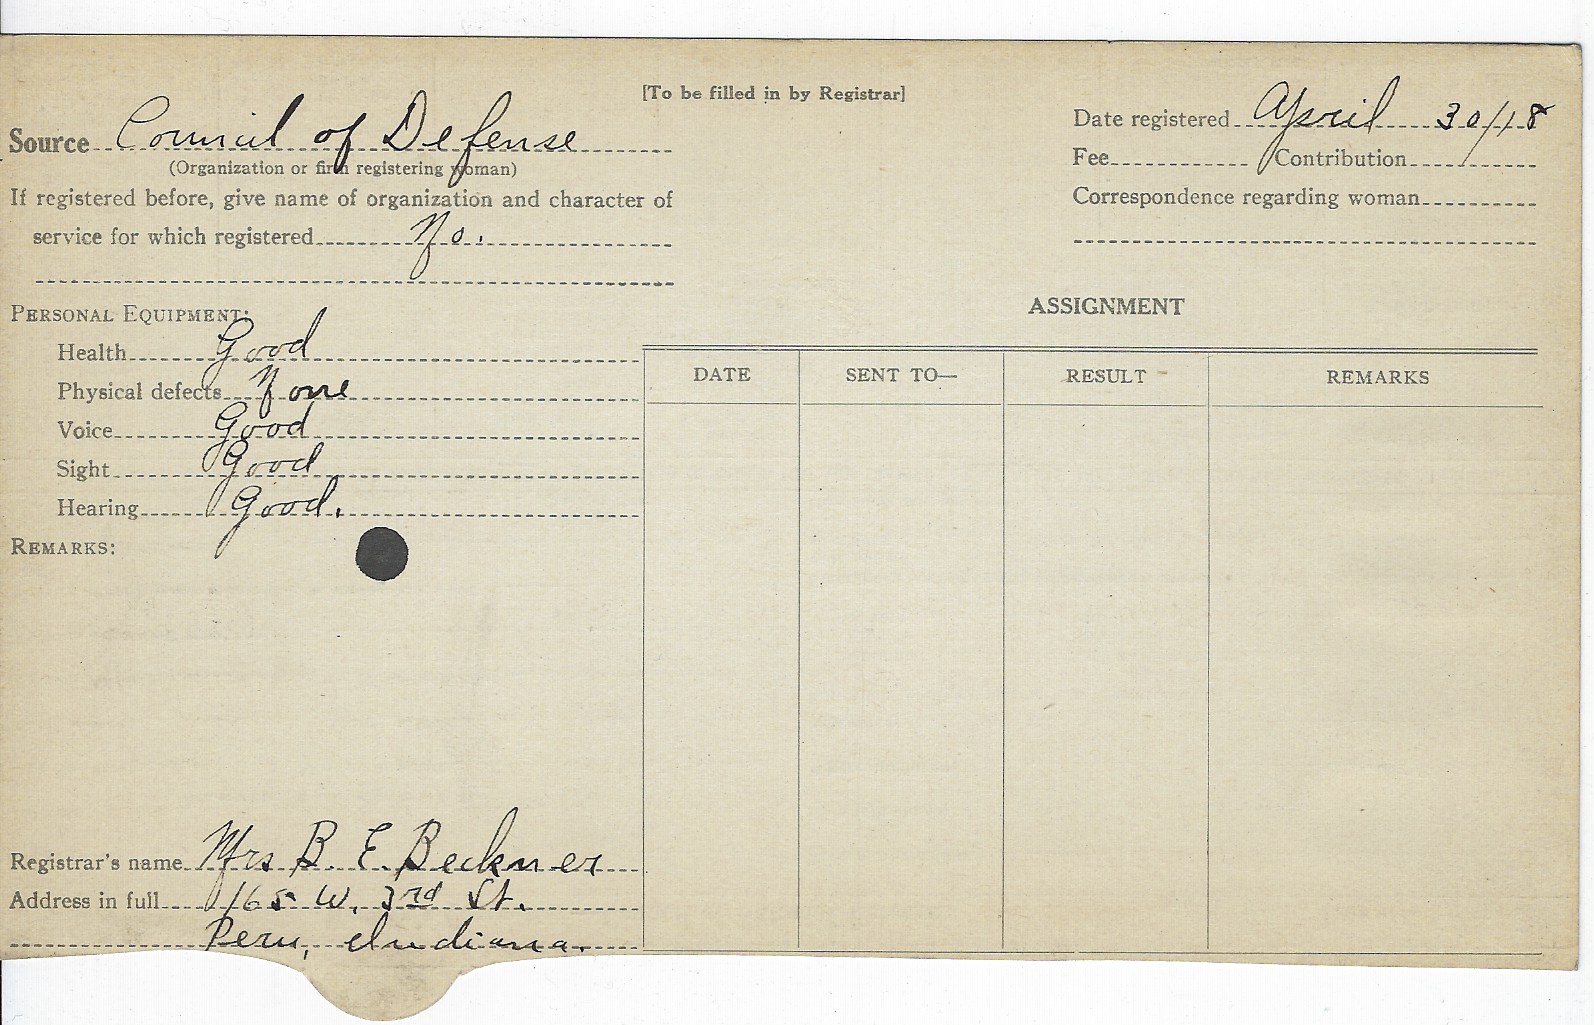 [To be filled in by Registrar]
Source Council of Defense
(Organization or firm registering woman)
If registered before, give name of organization and character of
service for which registered No.
Date registered April 30/18
Fee Contribution
Correspondence regarding woman
PERSONAL EQUIPMENT:
Health Good
Physical defects None
Voice Good
Sight Good
Hearing Good.
REMARKS:
ASSIGNMENT
DATE SENT TO— RESULT REMARKS
Registrar's name Mrs B. E. Beckner
Address in full 165 W. 3rd St.
Peru, Indiana.